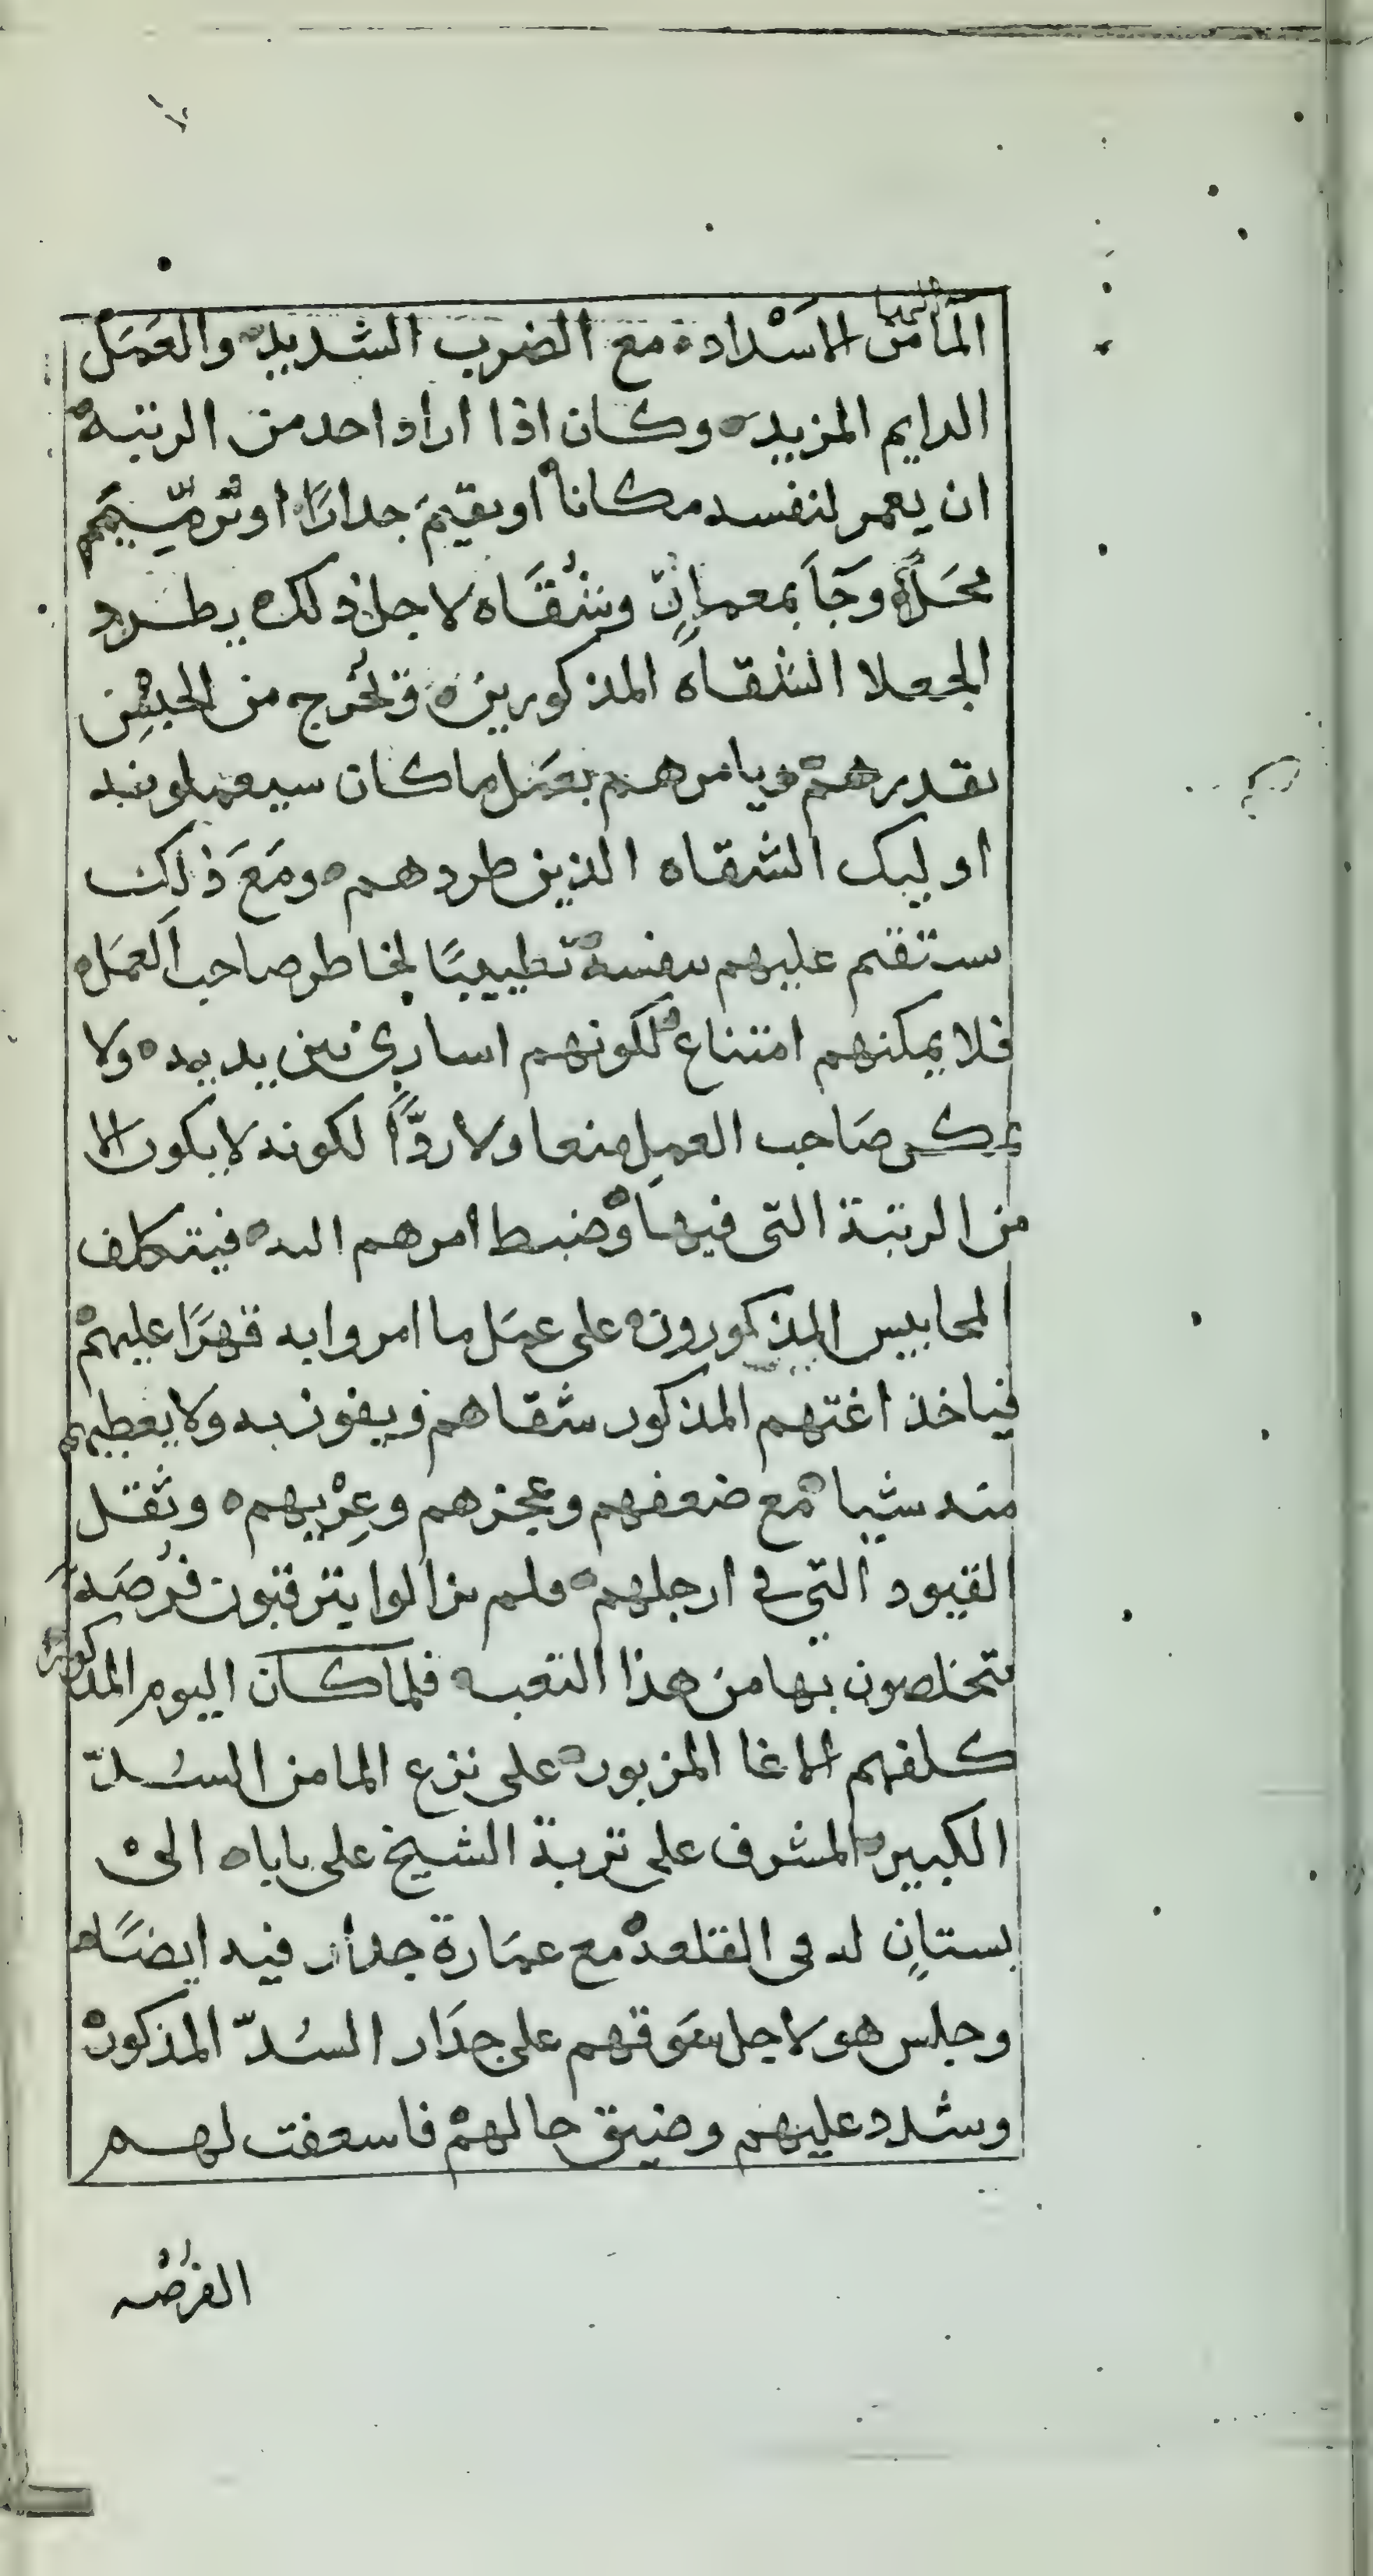 الماء من الاسْداده مع الضرب الشديد والعَمَل
الدايم المزيد وكان اذا اراد احد من الرتبة
ان يعمر لنفسه مكانا او يقيمَ جدارًا او ترميم
محَلَّه وجَا بمعمارٍ وشُقَاه لاجل ذلك يطرد
الجعلا الشقاه المذكورين وتخرج من الحبس
بقدرهم ويامرهم بعَمَل ما كان سيعملونه
اوليك الشقاه الذين طردهم ومَعَ ذلك
ستقم عليهم بنفسه تطييبًا لخاطر صاحب العمَل
فلا يمكنهم امتناع لكونهم اسارى بين يديه ولا
يمكن صَاحب العمل منعا ولا ردًّا لكونه لا يكون الا
من الرتبة التى فيها وضبط امرهم اليه فيتكلف
المحابيس المذكورون على عمَل ما امروا به قهرًا عليهم
فياخذ اغتهم المذكور شقاهم ويفوز به ولا يعطيهم
منه شيا مع ضعفهم وعجزهم وعِرْيهم وثقل
القيود التى فى ارجلهم ولم يزالوا يترقبون فُرصَة
يتخلصون بها من هذا التعب فلما كان اليوم المذكور
كلفهم الاغا المزبور على نزع الما من السُدّ
الكبير المشرف على تربة الشيخ على باباه الى
بستانٍ له فى القلعه مع عمَارة جدار فيه ايضًا
وجلس هو لاجل سَوقهم على جدَار السُدّ المذكور
وشدد عليهم وضيق حالهم فاسعفت لهم
الفرُصه